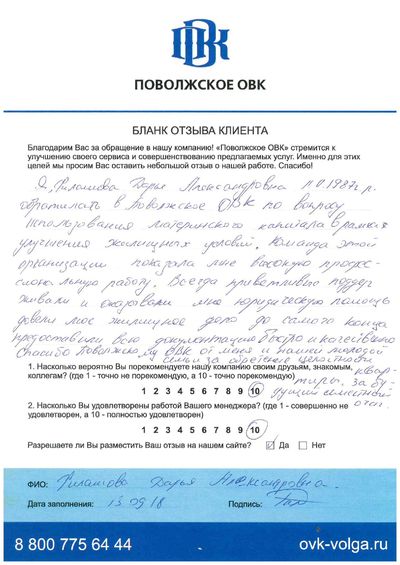 ПОВОЛЖСКОЕ ОВК
БЛАНК ОТЗЫВА КЛИЕНТА
Благодарим Вас за обращение в нашу компанию! «Поволжское ОВК» стремится к
улучшению своего сервиса и совершенствованию предлагаемых услуг. Именно для этих
целей мы просим Вас оставить небольшой отзыв о нашей работе. Спасибо!
Я, Филатова Дарья Александровна 1987 г.р.
обратилась в Поволжское ОВК по вопросу
использования материнского капитала в рамках
улучшения жилищных условий. Команда этой
организации показала мне высокую профес-
сиональную работу. Всегда приветливо поддер
живали и оказывали мне юридическую помощь
довели мое жилищное дело до самого конца
предоставили всю документацию быстро и качественно
Спасибо Поволжскому ОВК от меня и нашей молодой
семьи за обретение
квар-
1. Насколько вероятно Вы порекомендуете нашу компанию своим друзьям, знакомым,
коллегам? (где 1 - точно не порекомендую, а 10 - точно порекомендую)
тиры. за бу
1 2 3 4 5 6 7 8 9 10
дущий семейный
2. Насколько Вы удовлетворены работой Вашего менеджера? (где 1 - совершенно не
удовлетворен, а 10 - полностью удовлетворен)
очаг.
1 2 3 4 5 6 7 8 9 10
Разрешаете ли Вы разместить Ваш отзыв на нашем сайте? Да Нет
ФИО: Филатова Дарья Александровна.
Дата заполнения: 13 09 18 Подпись:
8 800 775 64 44 ovk-volga.ru